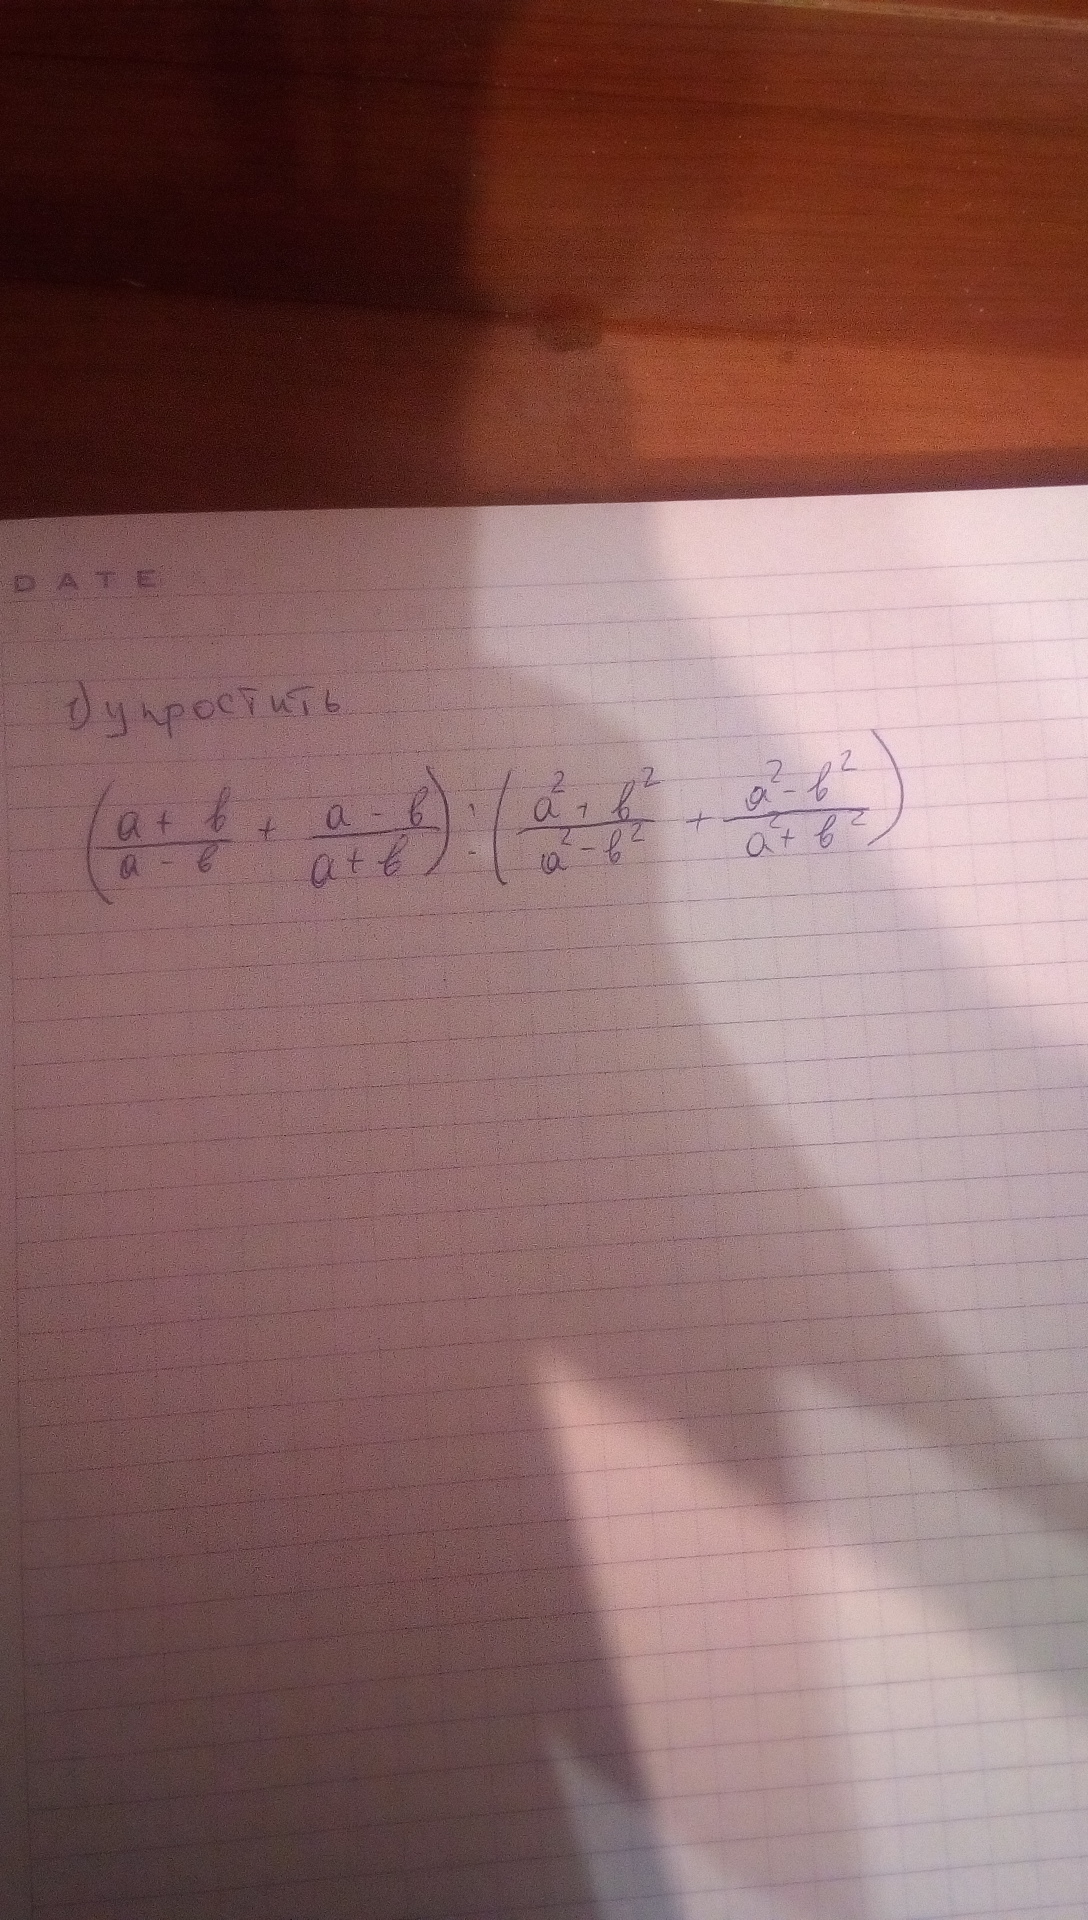 DATE
1) упростить
(a + b / a - b + a - b / a + b) : (a² + b² / a² - b² + a² - b² / a² + b²)